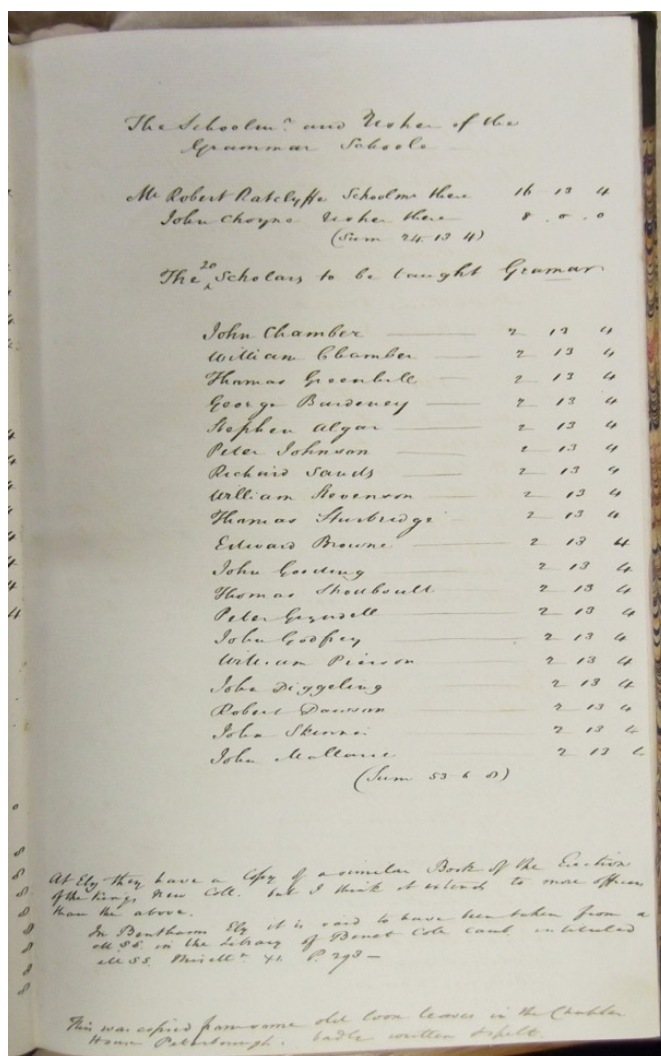 The Schoolmr. and Usher of the
Grammar Schoole
Mr Robert Ratclyffe Schoolmr there 16 13 4
John Choyne Usher there 8 . 0 . 0
(Sum 24 13 4)
The 20 Scholars to be taught Gramar
John Chamber 2 13 4
William Chamber 2 13 4
Thomas Greenhill 2 13 4
George Burdeney 2 13 4
Stephen Algar 2 13 4
Peter Johnson 2 13 4
Richard Sands 2 13 4
William Stevenson 2 13 4
Thomas Sturbridge 2 13 4
Edward Browne 2 13 4
John Gooding 2 13 4
Thomas Shotboult 2 13 4
Peter 2 13 4
John Godfrey 2 13 4
William Pierson 2 13 4
John Diggeling 2 13 4
Robert Dawson 2 13 4
John Skinner 2 13 4
John 2 13 4
(Sum 53 6 8)
At Ely they have a Copy of a similar Book of the Erection
of the Kings New Coll. but I think it extends to more offices
than the above.
In Benthams Ely it is said to have been taken from a
MSS. in the Library of Benet Coll. Camb. intituled
MSS. P. 293 —
This was copied from some old loose leaves in the Chapter
House Peterborough. badly written & spelt.